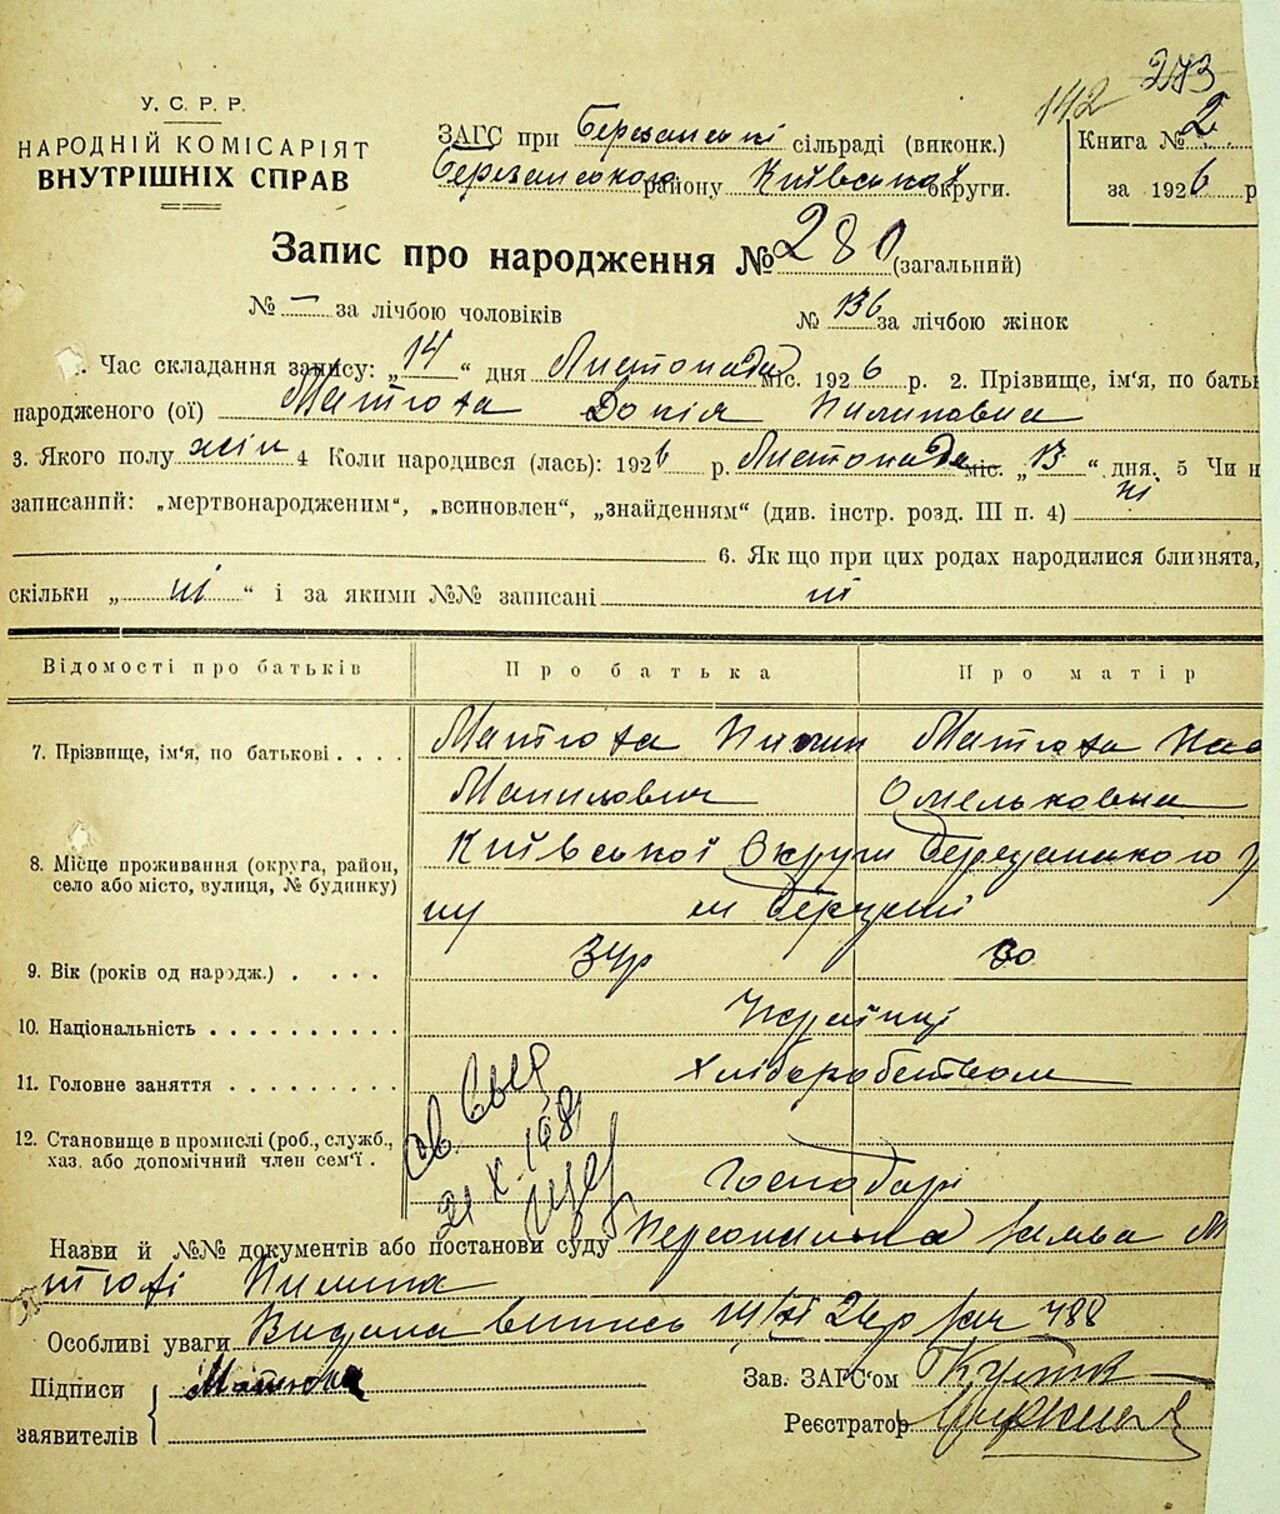 273
142
У. С. Р. Р.
НАРОДНІЙ КОМІСАРІЯТ
ВНУТРІШНІХ СПРАВ
ЗАГС при Березанській сільраді (виконк.)
Березанського району Київської округи.
Книга № 2
за 1926 р
Запис про народження № 280 (загальний)
№ — за лічбою чоловіків № 136 за лічбою жінок
. Час складання запису: „14“ дня Листопада міс. 1926 р. 2. Прізвище, ім'я, по бать
народженого (ої) Матюха Докія Пилиповна
3. Якого полу жін 4 Коли народився (лась): 1926 р. Листопада міс. „13“ дня. 5 Чи н
записаний: „мертвонародженим“, „всиновлен“, „знайденням“ (див. інстр. розд. III п. 4) ні
6. Як що при цих родах народилися близнята,
скільки „ ні “ і за якими №№ записані ні
Відомості про батьків Про батька Про матір
7. Прізвище, ім'я, по батькові . . . . Матюха Пилип Матюха
Омельковна
8. Місце проживання (округа, район, Київської Округи Березанського р
село або місто, вулиця, № будинку)
ну м Березані
9. Вік (років од народж.) . . . . 34р 30
10. Національність . . . . . . . . . . Українці
11. Головне заняття . . . . . . . . . Хліборобством
12. Становище в промислі (роб., служб.,
хаз. або допомічний член сем'ї . Господарі
21 X.
Назви й №№ документів або постанови суду Персональна заява М
тюхи Пилипа
Особливі уваги Видана випись 14/XI 26р 488
Підписи Матюха Зав. ЗАГС'ом
заявителів Реєстратор